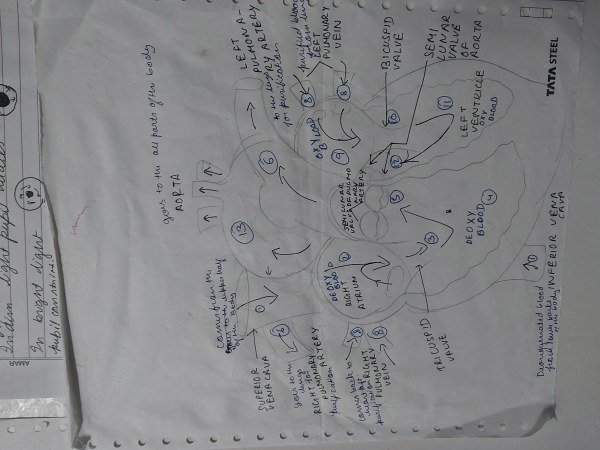 In dim light pupil dilates
In bright light
pupil constricts
AMAR
goes to the all parts of the body
AORTA
LEFT
PULMONA-
RY ARTERY
to the lung
for purification
purified blood
from lung
LEFT
PULMONARY
VEIN
BICUSPID
VALVE
SEMI
LUNAR
VALVE
OF
AORTA
TATA STEEL
13
6
8
8
OXY BLOOD
9
10
12
11
LEFT
VENTRICLE
OXY
BLOOD
SEMILUNAR
VALVE OF PULMO
NARY
ARTERY
5
DEOXY
BLOOD
4
3
2
DEOXY
BLOOD
RIGHT
ATRIUM
1
6
8
8
SUPERIOR
VENA CAVA
goes to the
lung
for
RIGHT PULMONARY
ARTERY
purification
comes back to
RIGHT
PULMONARY
VEIN
TRICUSPID
VALVE
INFERIOR VENA
CAVA
Deoxygenated blood
from lower parts
of the body